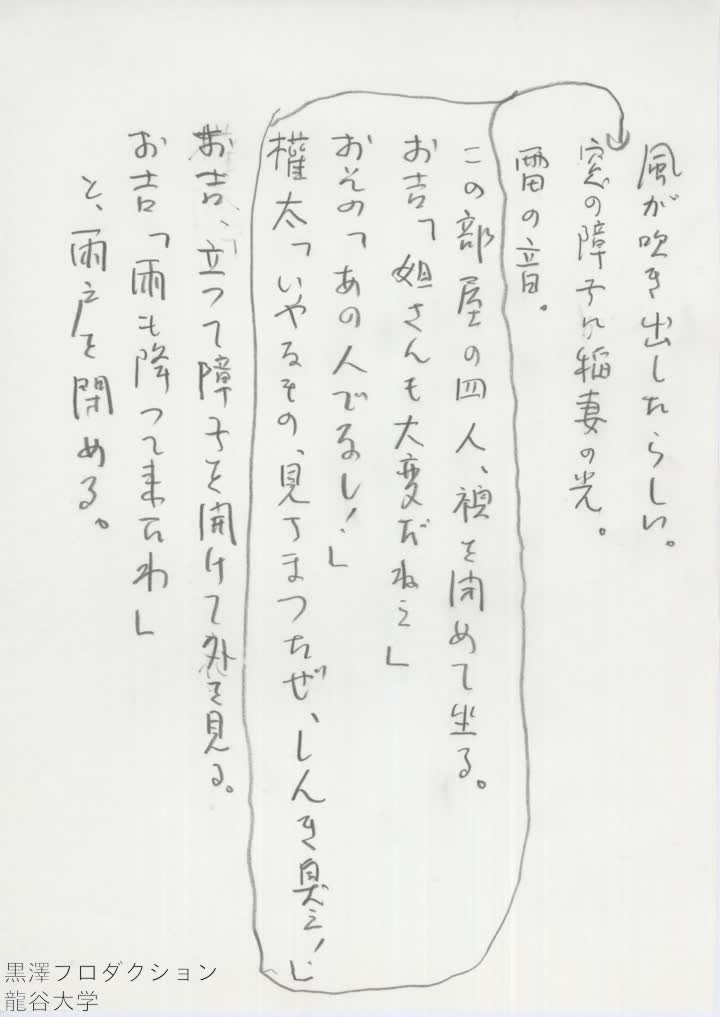 風が吹き出したらしい。
窓の障子に稲妻の光。
雷の音。
この部屋の四人、襖を閉めて坐る。
お吉「姐さんも大変だねえ」
おその「あの人でなし！」
權太「いやなもの、見ちまつたぜ、しんき臭え！」
お吉、立つて障子を開けて外を見る。
お吉「雨も降つて来たわ」
と、雨戸を閉める。
黒澤プロダクション
龍谷大学